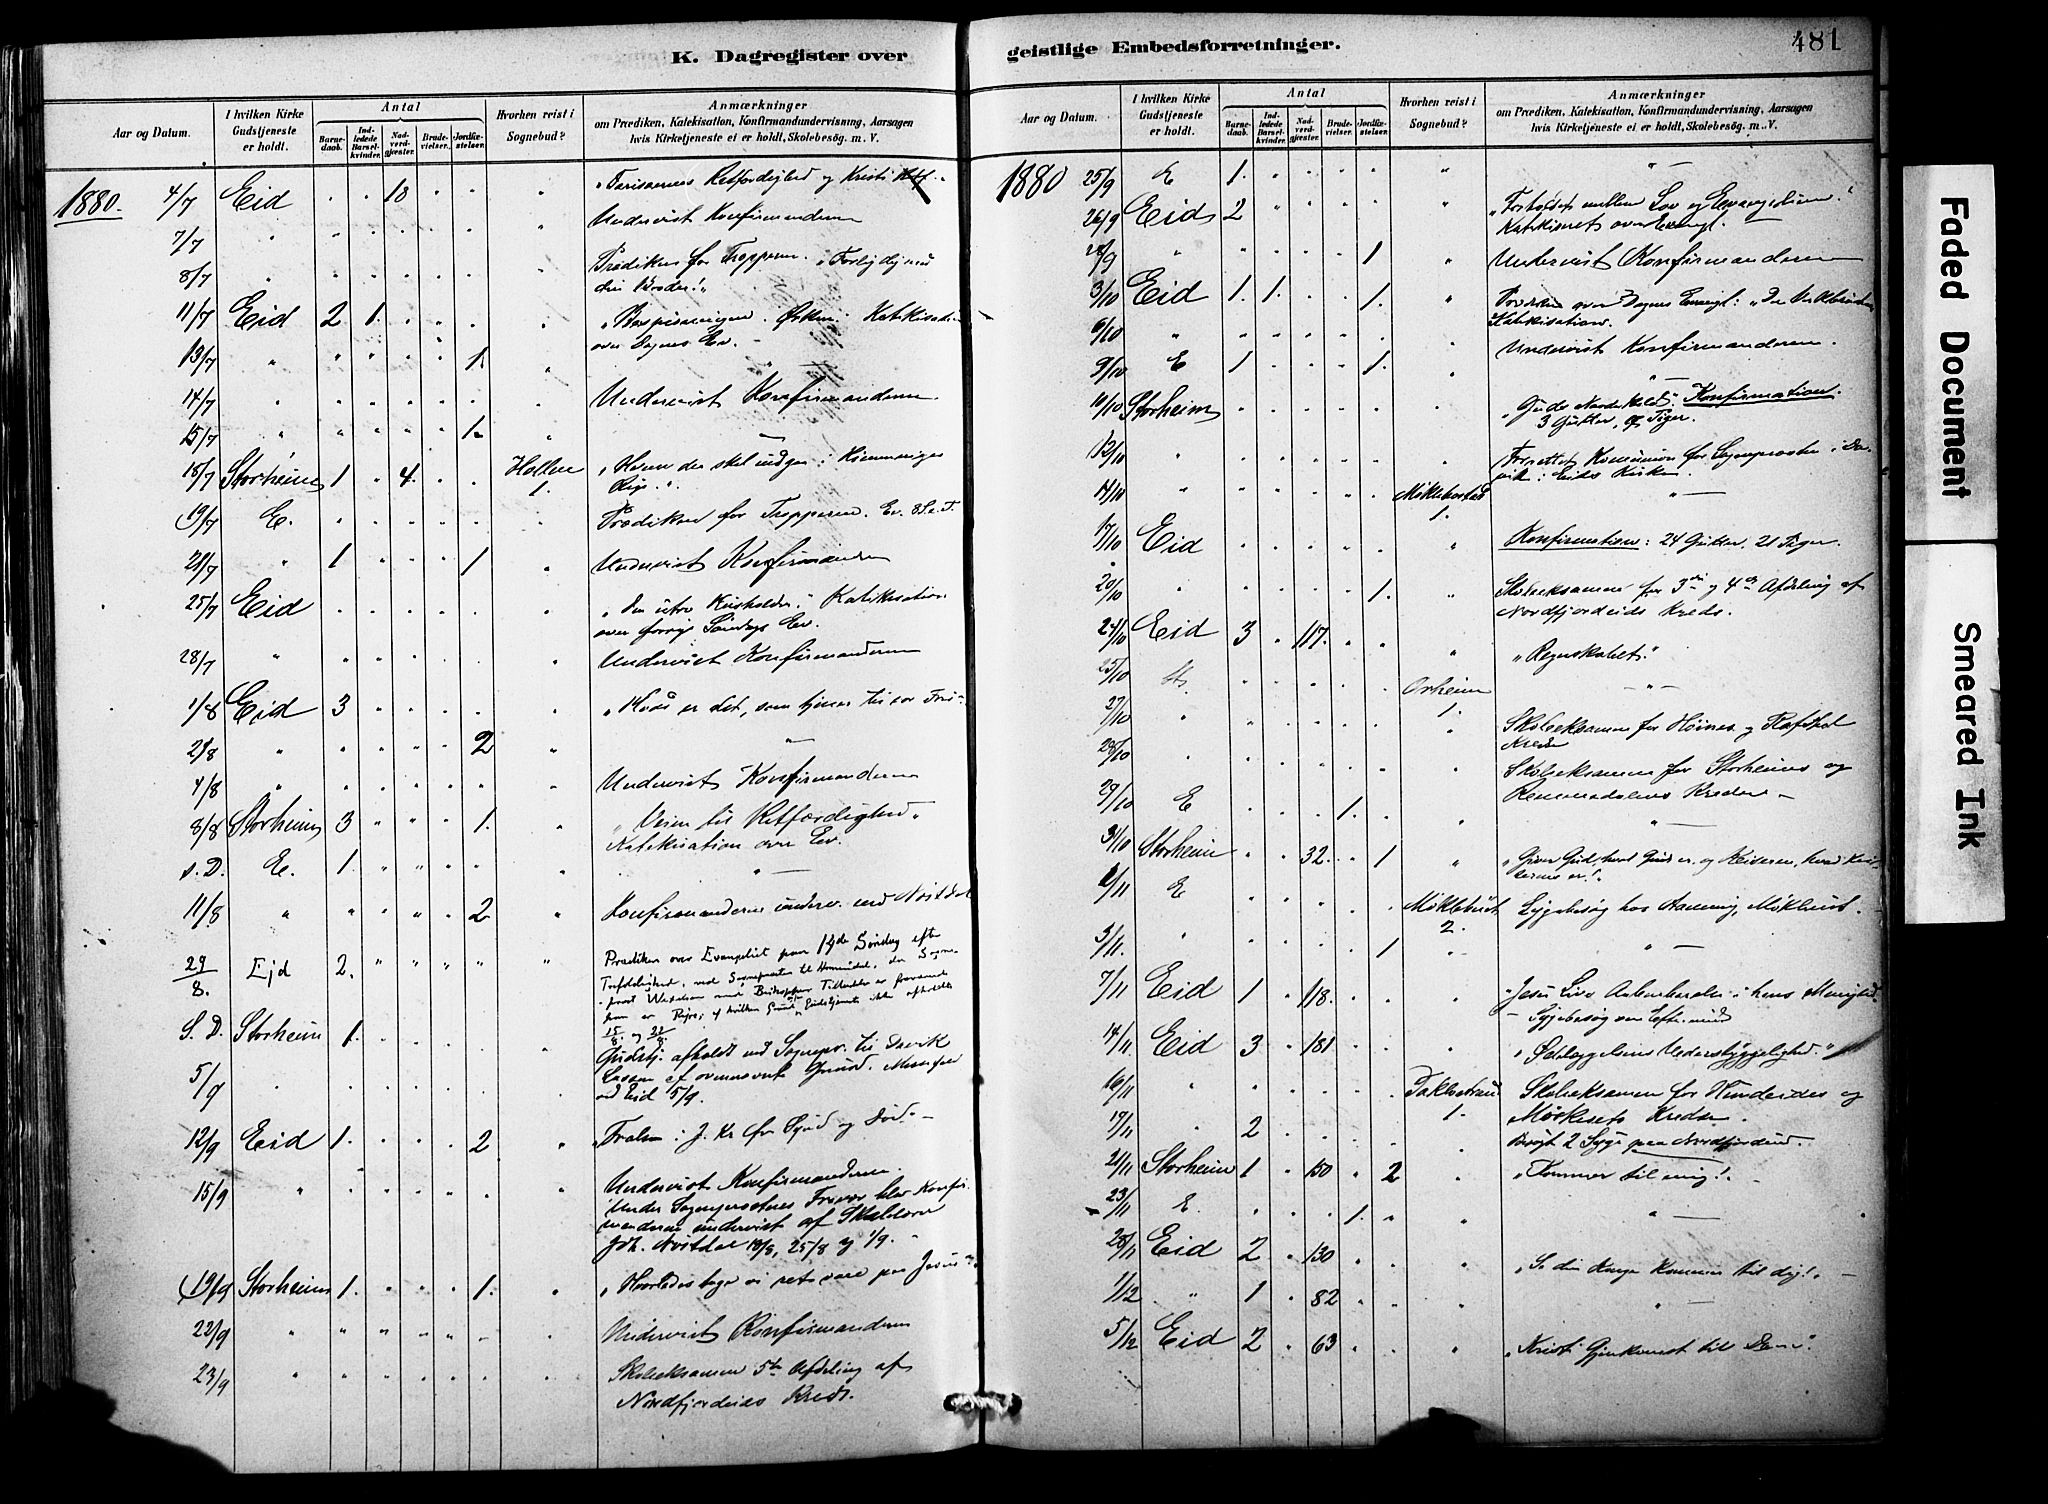 K. Dagregister over
geistlige Embedsforretninger.
481
Aar og Datum.
I hvilken Kirke Gudstjeneste er holdt.
Antal
Barnedaab.
Indledede Barselkvinder.
Nadverdgjester.
Brudevielser.
Jordfæstelser.
Hvorhen reist i Sognebud?
Anmærkninger
om Prædiken, Katekisation, Konfirmandundervisning, Aarsagen
hvis Kirketjeneste ei er holdt, Skolebesög. m. V.
1880. 4/7 Eid " " 18 " " " "Farisæernes Retfærdighed og Kristi
7/7 " Undervist Konfirmanderne
8/7 " Prædiken for Tropperne. "Forlig dig med
din Broder!"
11/7 Eid 2 1. " " " " "Bespisningen i Ørkenen." Katekisation
over Dagens Ev.
13/7 " " " " " 1. "
14/7 " Undervist Konfirmanderne
15/7 " " " " " 1. "
18/7 Storheim 1 " 4. " " Hollen 1. "Hvem der skal indgaa i Himmeriges
Rige."
19/7 E. Prædiken for Tropperne. Ev. 8 S. e. T.
21/7 " 1 " " " 1 " Undervist Konfirmanderne
25/7 Eid "Den utro Husholder." Katekisation
over forrige Søndags Ev.
28/7 " Undervist Konfirmanderne
1/8 Eid 3 " " " " " "Hvad er det, som tjener til vor Fred"
2/8 " " " " " 2 " "
4/8 " Undervist Konfirmanderne
8/8 Storheim 3 " " " 1. " "Veien til Retfærdighed"
Katekisation over Ev.
s. D. E. 1. " " " " " "
11/8 " " " " " 2 " Konfirmanderne underv. ved Nøstdal
29/8. Ejd 2. " " " " " Prædiken over Evangeliet paa 14de Søndag efter
Trefoldighed, ved Sognepresten til Hornindal, da Sogne-
prest med Biskoppens Tilladelse er fraværende
paa en Rejse; af hvilken Grund Gudstjeneste ikke afholdtes
15/8 og 22/8.
S. D. Storheim 1. Gudstj. afholdt ved Sognepr. til Davik
5/9 af ovennævnte Grund. Messefald
ved Eid 5/9.
12/9 Eid 1. " " " 2 " "Frelse i J. Kr. fra Synd og Død."
15/9 " Undervist Konfirmanderne.
Under Sogneprestens Fravær blev Konfir-
manderne undervist af Skolelærer
Joh. Nøstdal 18/8, 25/8 og 1/9.
19/9 Storheim 1. " " " 1. " "Hvorledes tage vi ret vare paa Jesus"
22/9 " Undervist Konfirmanderne
23/9 " Skoleeksamen 5te Afdeling af
Nordfjordeids Kreds.
Aar og Datum.
I hvilken Kirke Gudstjeneste er holdt.
Antal
Barnedaab.
Indledede Barselkvinder.
Nadverdgjester.
Brudevielser.
Jordfæstelser.
Hvorhen reist i Sognebud?
Anmærkninger
om Prædiken, Katekisation, Konfirmandundervisning, Aarsagen
hvis Kirketjeneste ei er holdt, Skolebesög. m. V.
1880 25/9 E 1. " " " " " "
26/9 Eid 2 " " " " " "Forholdet mellem Lov og Evangelium."
Katekiseret over Evangl.
28/9 " " " " " 1 " Undervist Konfirmanderne
3/10 Eid 1. 1. " " 1. " Prædiken over Dagens Evangl:
Katekisation.
6/10 " Undervist Konfirmanderne.
9/10 E 1 " " " 1. " "
10/10 Storheim "Guds Naadeskald". Konfirmation
3 Gutter, 9 Piger.
12/10 " Forrettet Konfirmation for Sognepresten i Da-
vik i Eids Kirke.
14/10 " Møklebustad 1. "
17/10 Eid Konfirmation: 24 Gutter, 21 Piger.
20/10 " " " " " 1. " Skoleeksamen for 3die og 4de Afdeling af
Nordfjordeids Kreds.
24/10 Eid 3 " 117. " " " "Regnskabet."
25/10 St. Orheim 1. "
27/10 " Skoleeksamen for Høines og Rafstad
Kredse
28/10 " Skoleeksamen for Storheims og
Kredse
29/10 E " " " 1. " " "
31/10 Storheim " " 32. " 1 " "Giver Gud, hvad Guds er, og Keiseren, hvad Kei-
serens er!"
2/11 E Møklebust 2. Sygebesøg hos Møklebust.
3/11. " " " " " 1 " "
7/11 Eid 1 " 118. " " " "Jesu Livs Aabenbarelse i hans Menighed."
Sygebesøg om Efterm.
14/11 Eid 3 " 181 " " " "Ødelæggelsens Vederstyggelighed."
16/11 " Taklestrand 1. Skoleeksamen for Hundeides og
Mørkesets Kredse.
19/11 " 2 Besøgt 2 Syge paa Nordfjordeid.
21/11 Storheim 1 " 150 " 2 " "Kommer til mig!"
23/11 E. " " " 1. " " "
28/11 Eid 2 " 130 " " " "Se din Konge kommer til dig!"
1/12 " 1 " 82 " " " "
5/12 Eid 2 " 63 " " " "Kristi Gjenkomst til Dom."
Faded Document
Smeared Ink